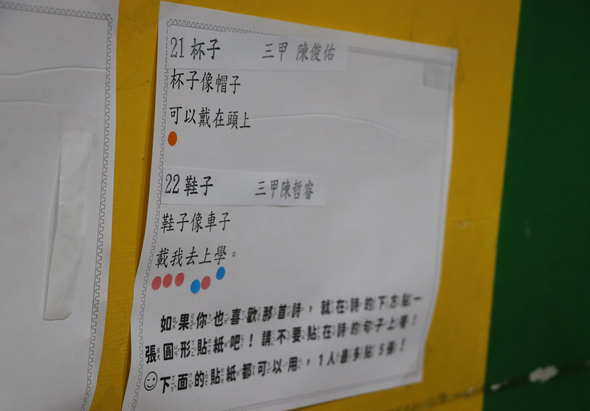 21 杯子 三甲 陳俊佑
杯子像帽子
可以戴在頭上
22 鞋子 三甲陳哲睿
鞋子像車子
載我去上學。
如果你也喜歡那首詩,就在詩的下方貼一
張圓形貼紙吧!請不要貼在詩的句子上喔!
下面的貼紙都可以用,1人最多貼5張!